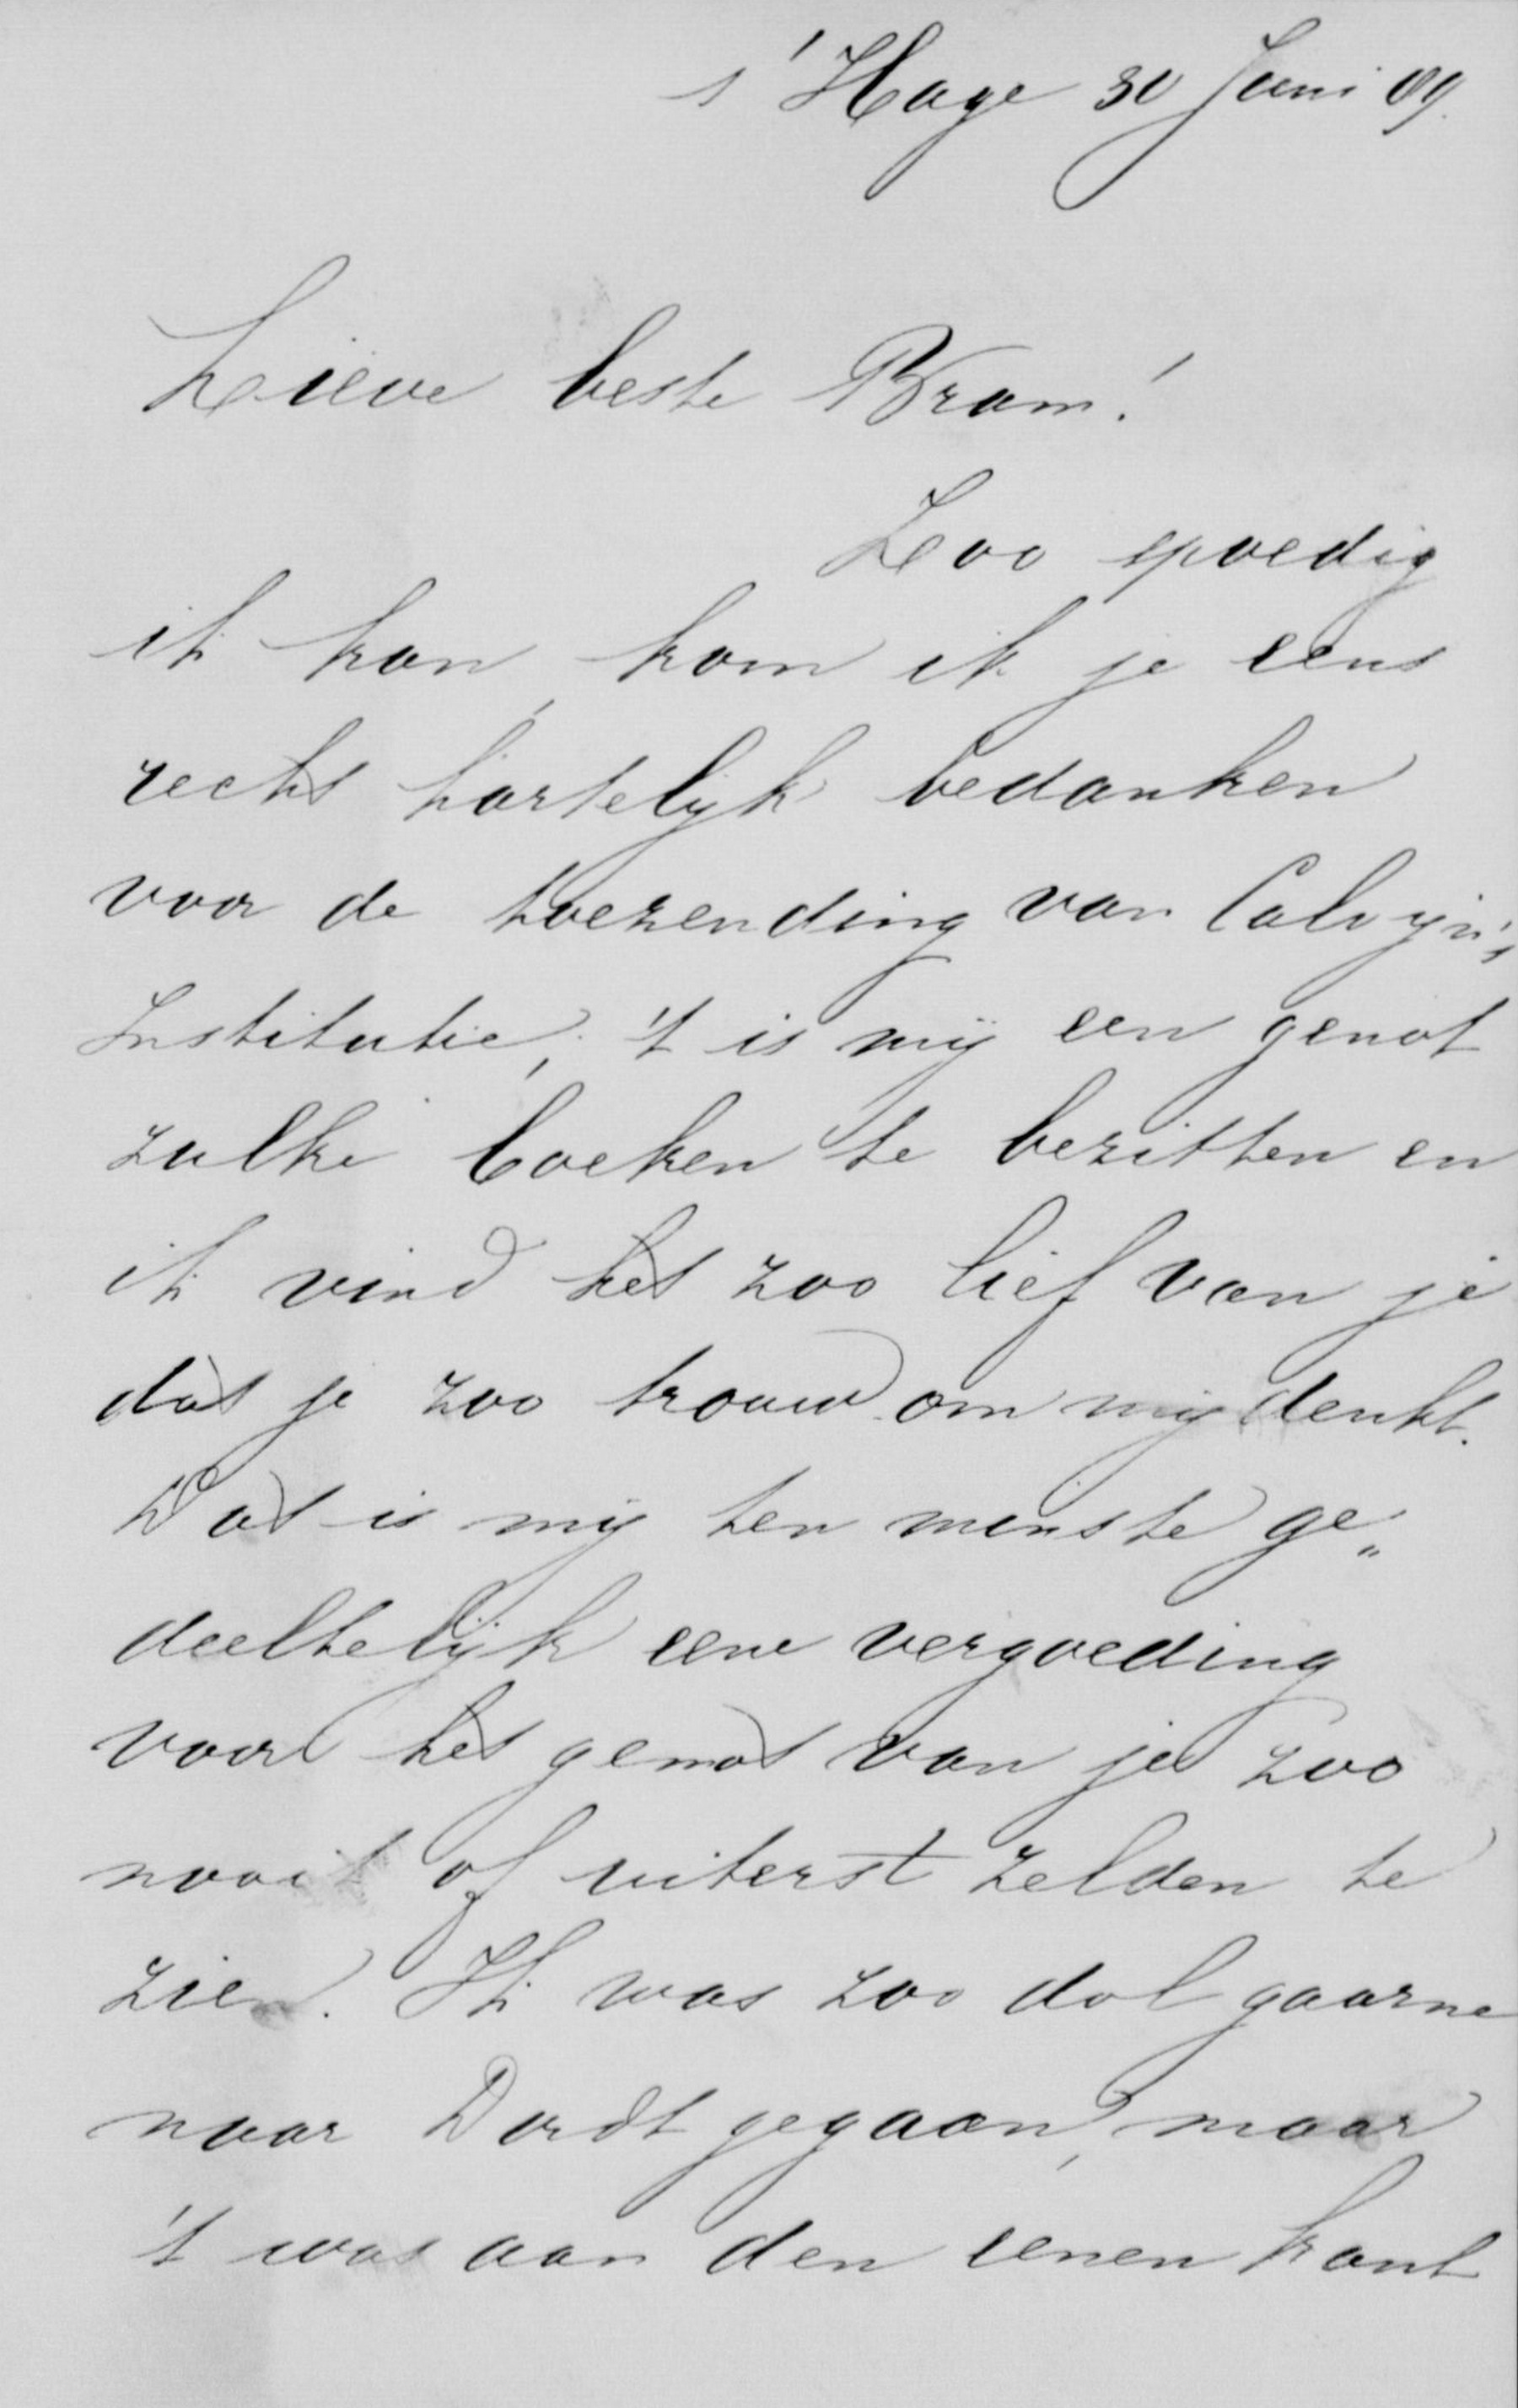 s'Hage 30 Juni 09.
Lieve beste Bram!
Zoo spoedig
ik kan, kom ik je eens
recht hartelijk bedanken
voor de toezending van Calvijn's
Institutie, 't is mij een genot
zulke boeken te bezitten en
ik vind het zoo lief van je
dat je zoo trouw om mij denkt.
Dat is mij ten minste ge„
deeltelijk eene vergoeding
voor het gemis van je zoo
nooit of uiterst zelden te
zien. Ik was zoo dol gaarne
naar Dordt gegaan, maar
't was aan den eenen kant